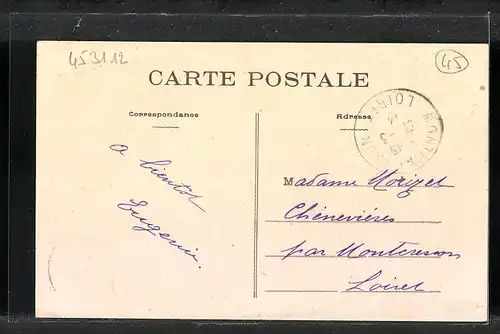 453112
45
CARTE POSTALE
Correspondance
Adresse
LOIRET
a bientot
Eugenie.
Madame Morizet
Chenevières
par Montcresson
Loiret